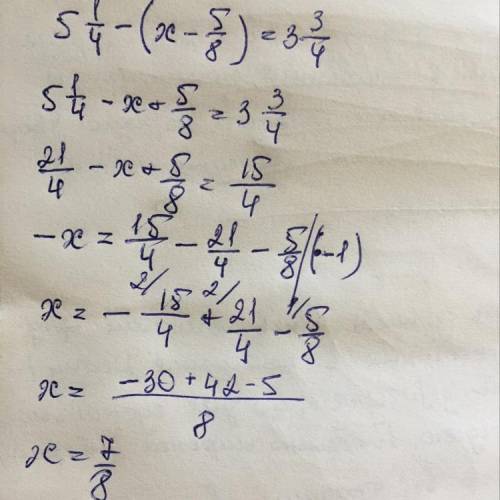 5 1/4 - (x - 5/8) = 3 3/4
5 1/4 - x + 5/8 = 3 3/4
21/4 - x + 5/8 = 15/4
-x = 15/4 - 21/4 - 5/8 / (·-1)
x = - 2/ 15/4 + 2/ 21/4 - 1/ 5/8
x = (-30 + 42 - 5)/8
x = 7/8